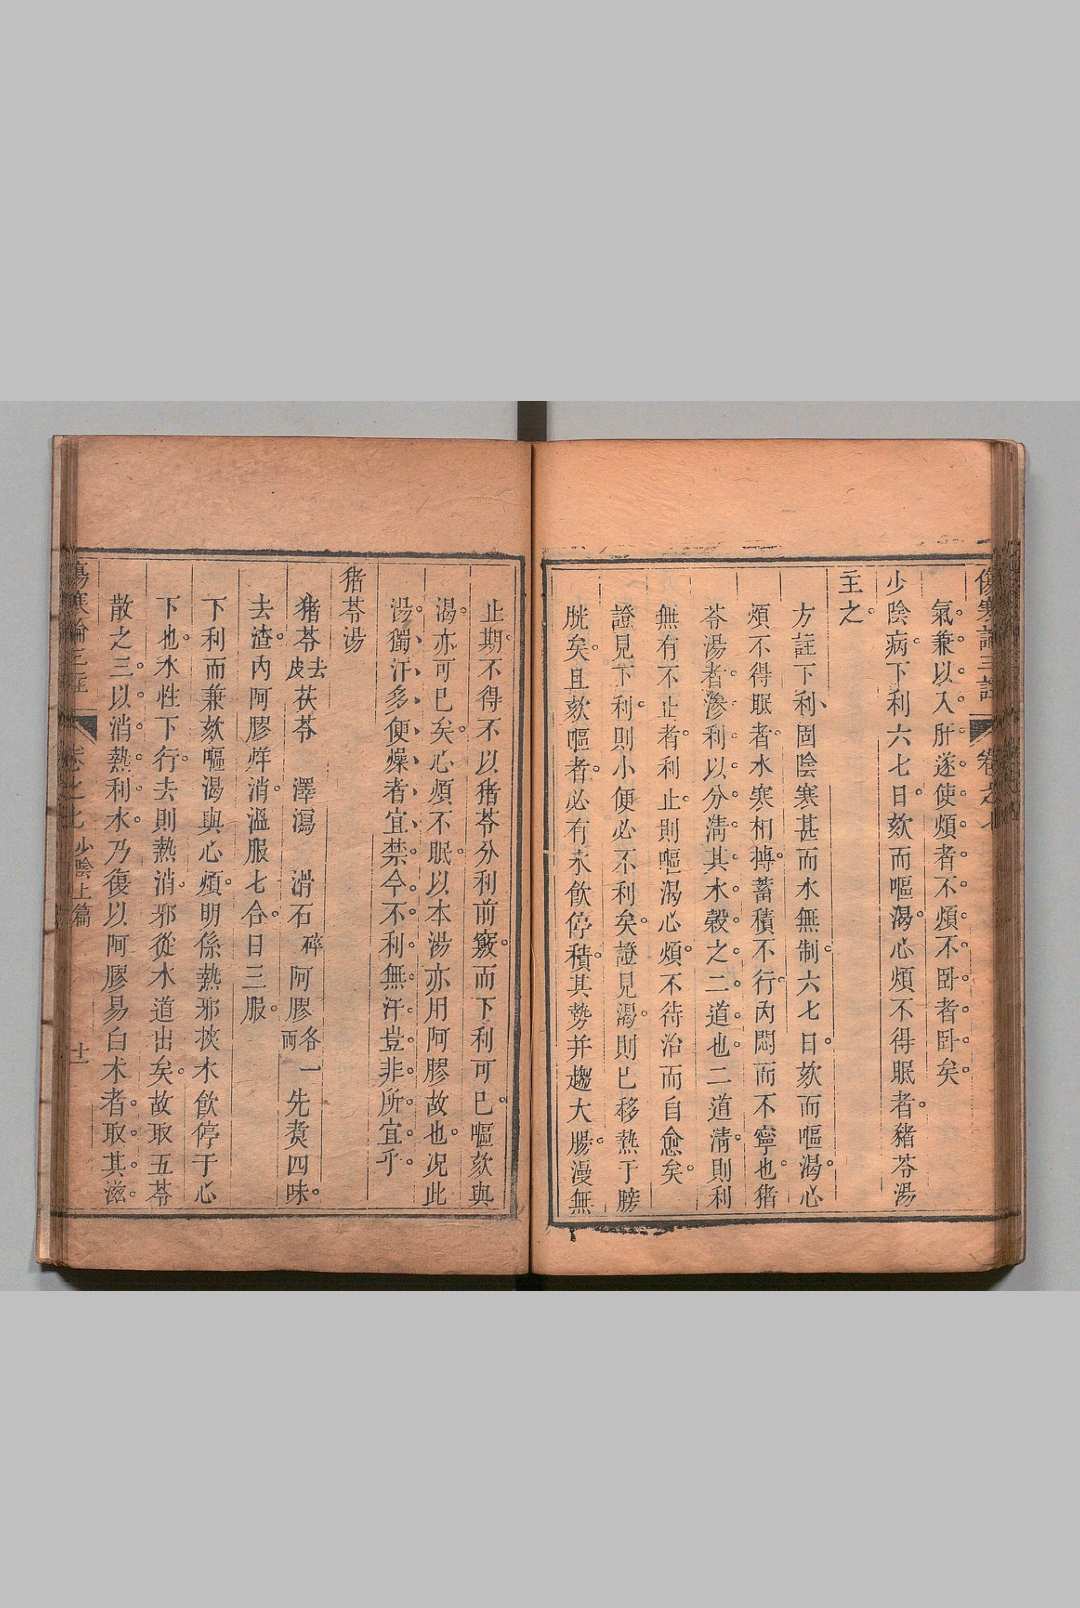 傷寒論三註　卷之七
氣兼以入肝遂使煩者不煩不卧者卧矣
少陰病下利六七日欬而嘔渴心煩不得眠者豬苓湯
主之
方註下利固陰寒甚而水無制六七日欬而嘔渴心
煩不得眠者水寒相搏蓄積不行內悶而不寧也猪
苓湯者滲利以分淸其水穀之二道也二道淸則利
無有不止者利止則嘔渴心煩不待治而自愈矣
證見下利則小便必不利矣證見渴則已移熱于膀
胱矣且欬嘔者必有水飲停積其勢并趨大腸漫無
止期不得不以猪苓分利前竅而下利可已嘔欬與
渴亦可已矣心煩不眠以本湯亦用阿膠故也况此
湯獨汗多便燥者宜禁今不利無汗豈非所宜乎
猪苓湯
猪苓去皮茯苓　澤瀉　滑石碎阿膠各一兩先煑四味
去渣內阿膠烊消溫服七合日三服
下利而兼欬嘔渴與心煩明係熱邪挾水飲停于心
下也水性下行去則熱消邪從水道出矣故取五苓
散之三以消熱利水乃復以阿膠易白朮者取其滋
傷寒論三註　卷之七　少陰上篇　十一